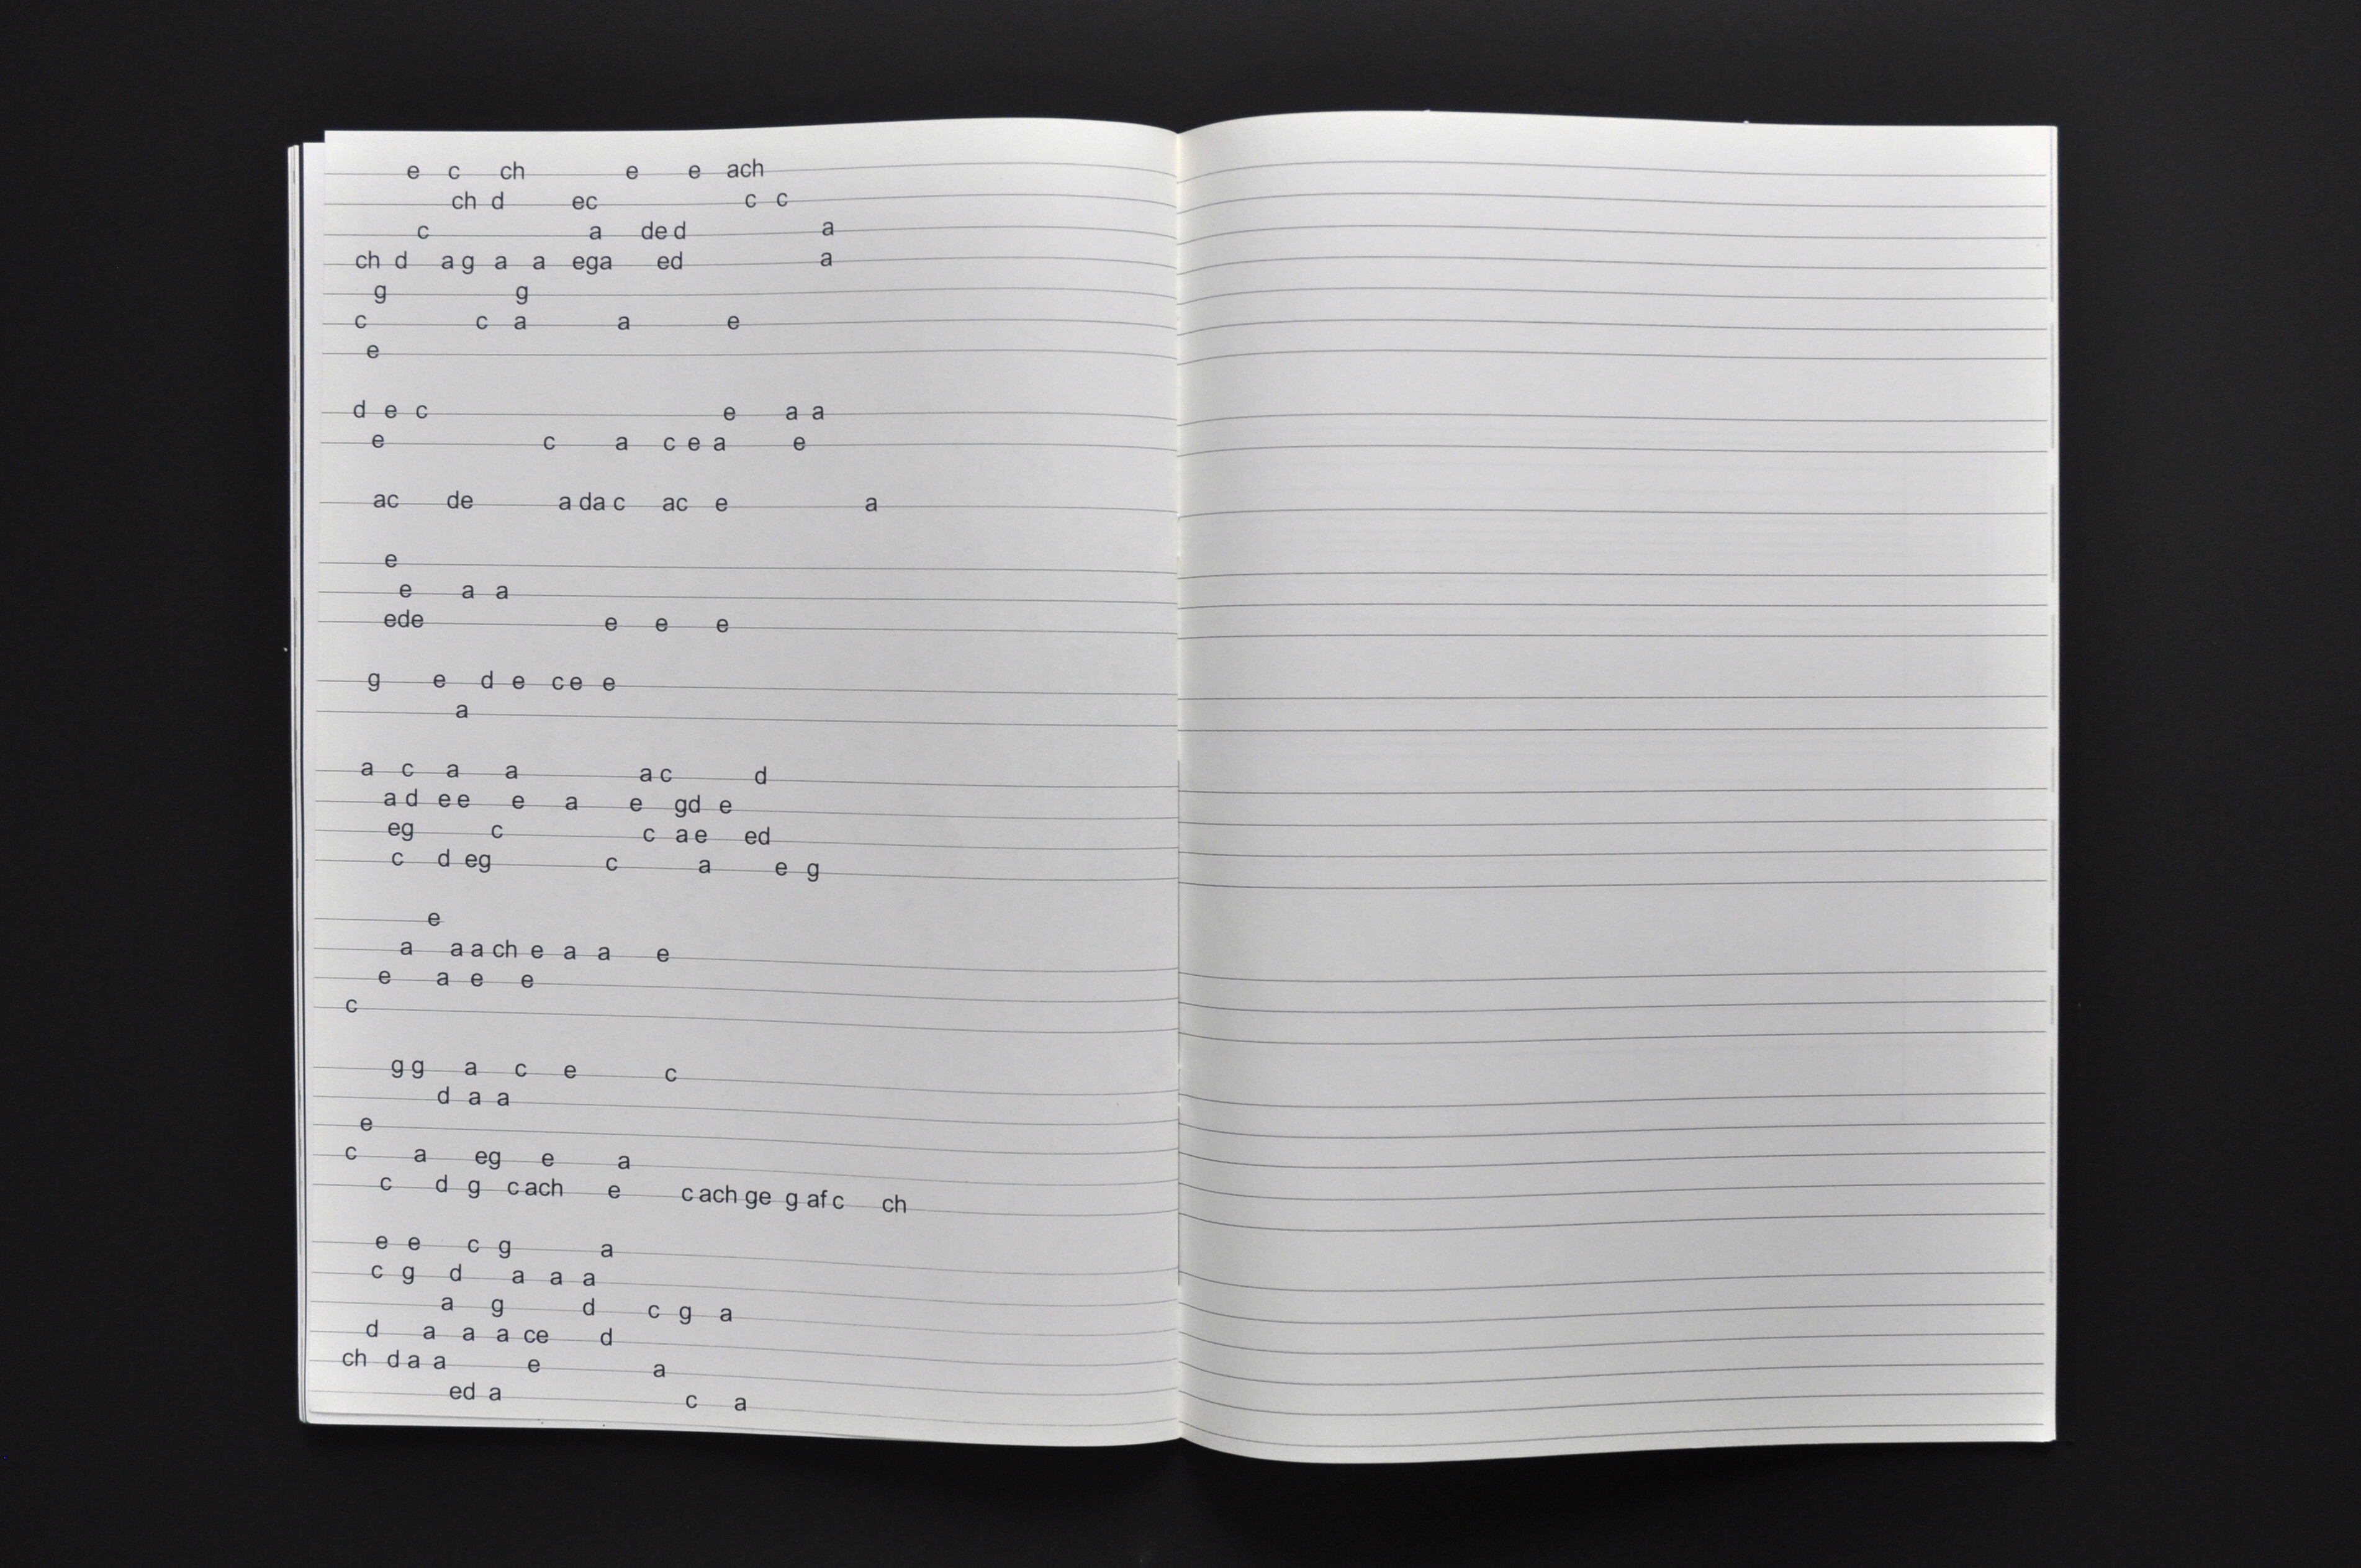 e c ch e e ach
ch d ec c c
c a ded a
ch d ag a a ega ed a
g g
c c a a e
e
d e c e a a
e c a c e a e
ac de a da c ac e a
e
e a a
ede e e e
g e d e ce e
a
a c a a a c d
a d ee e a e gd e
eg c c a e ed
c d eg c a e g
e
a a a ch e a a e
e a e e
c
g g a c e c
d a a
e
c a eg e a
c d g c ach e c ach ge g af c ch
e e c g a
c g d a a a
a g d c g a
d a a a ce d
ch d a a e a
ed a c a